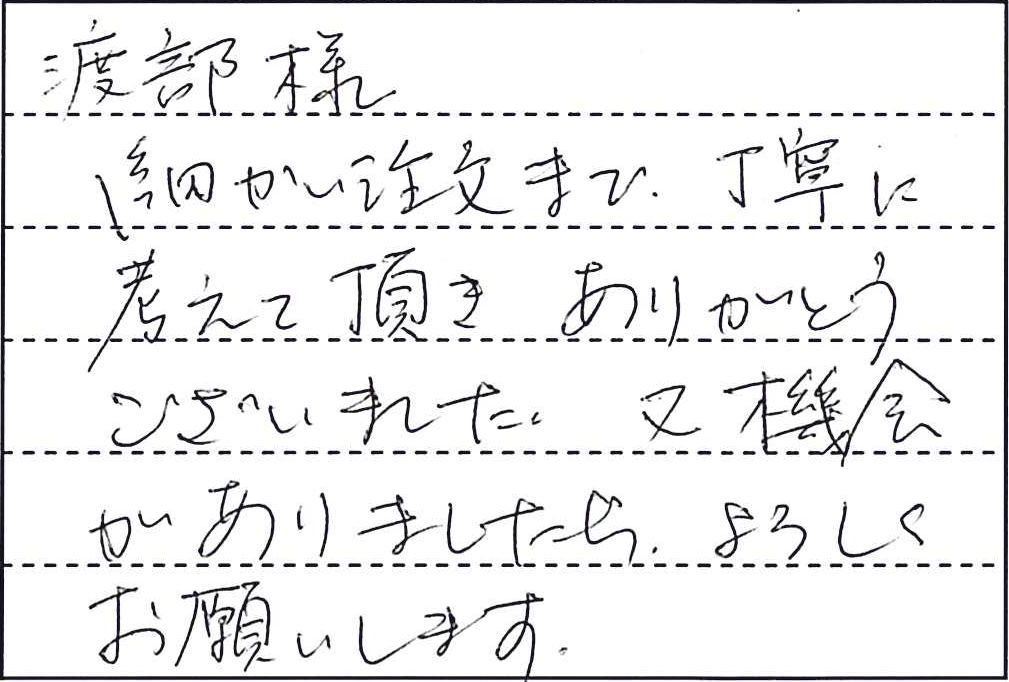 渡部様
細かい注文まで、丁寧に
考えて頂きありがとう
ございました。又機会
がありましたら、よろしく
お願いします。